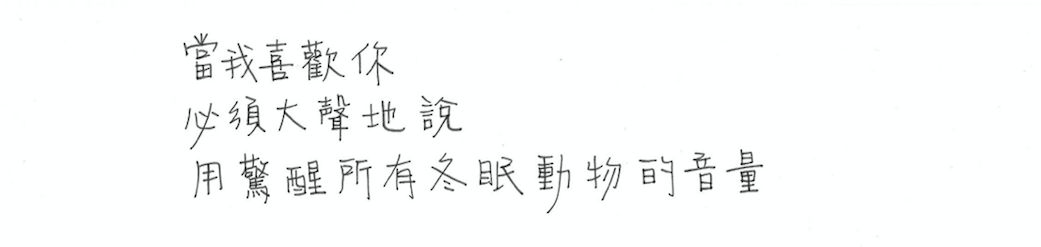 當我喜歡你
必須大聲地說
用驚醒所有冬眠動物的音量